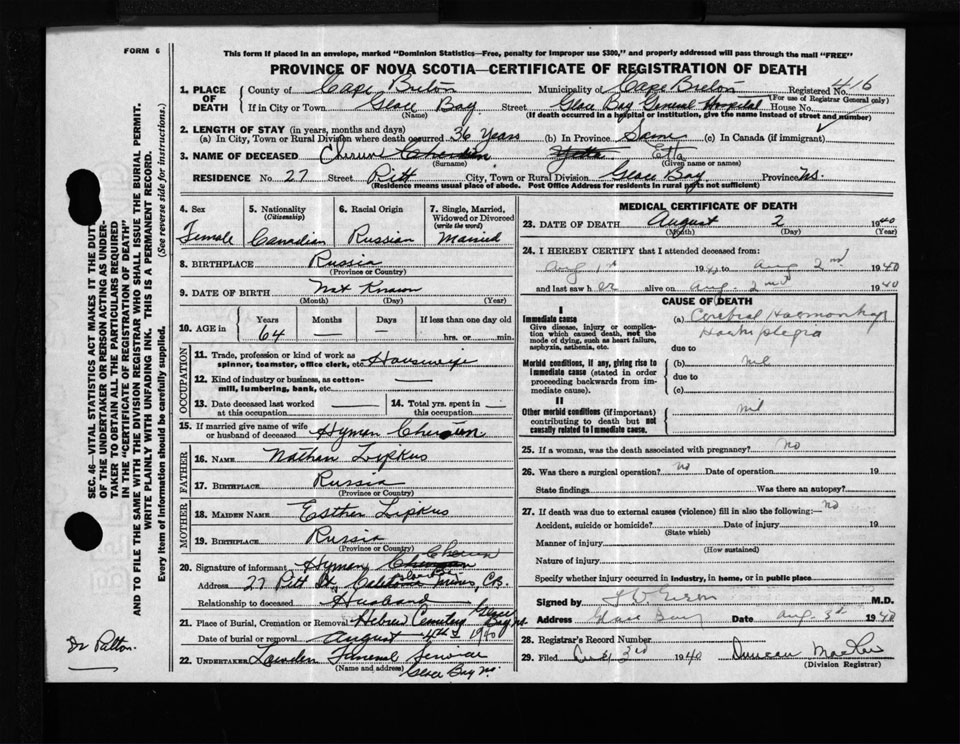 FORM 6
This form if placed in an envelope, marked "Dominion Statistics—Free, penalty for improper use $300," and properly addressed will pass through the mail "FREE"
PROVINCE OF NOVA SCOTIA—CERTIFICATE OF REGISTRATION OF DEATH
1. PLACE OF DEATH County of Cape Breton Municipality of Cape Breton Registered No. 416
(For use of Registrar General only)
If in City or Town Glace Bay Street Glace Bay General Hospital House No.
(Name) (If death occurred in a hospital or institution, give the name instead of street and number)
2. LENGTH OF STAY (in years, months and days)
(a) In City, Town or Rural Division where death occurred 36 Years (b) In Province Same (c) In Canada (if immigrant)
3. NAME OF DECEASED Etta
(Surname) (Given name or names)
RESIDENCE No. 27 Street Pitt City, Town or Rural Division Glace Bay Province NS.
(Residence means usual place of abode. Post Office Address for residents in rural parts not sufficient)
4. Sex Female
5. Nationality (Citizenship) Canadian
6. Racial Origin Russian
7. Single, Married, Widowed or Divorced (write the word) Married
8. BIRTHPLACE Russia
(Province or Country)
9. DATE OF BIRTH Not Known
(Month) (Day) (Year)
10. AGE in Years 64 Months — Days — If less than one day old hrs. or min.
OCCUPATION
11. Trade, profession or kind of work as spinner, teamster, office clerk, etc. Housewife
12. Kind of industry or business, as cotton-mill, lumbering, bank, etc. —
13. Date deceased last worked at this occupation —
14. Total yrs. spent in this occupation —
15. If married give name of wife or husband of deceased Hyman
FATHER
16. NAME Nathan Lipkus
17. BIRTHPLACE Russia
(Province or Country)
MOTHER
18. MAIDEN NAME Esther Lipkus
19. BIRTHPLACE Russia
(Province or Country)
20. Signature of informant Hyman
Address 27 Pitt St, C.B.
Relationship to deceased Husband
21. Place of Burial, Cremation or Removal Hebrew Cemetery Glace Bay NS
Date of burial or removal August 4th 1940
22. UNDERTAKER Funeral Service
(Name and address) Glace Bay NS.
MEDICAL CERTIFICATE OF DEATH
23. DATE OF DEATH August 2 1940
(Month) (Day) (Year)
24. I HEREBY CERTIFY that I attended deceased from:
Aug 1st 1940 to Aug 2nd 1940
and last saw her alive on Aug. 2nd 1940
CAUSE OF DEATH
I
Immediate cause (a) Cerebral
Give disease, injury or complication which caused death, not the mode of dying, such as heart failure, asphyxia, asthenia, etc.
due to
Morbid conditions, if any, giving rise to immediate cause (stated in order proceeding backwards from immediate cause).
(b) nil
due to
(c)
II
Other morbid conditions (if important) contributing to death but not causally related to immediate cause.
nil
25. If a woman, was the death associated with pregnancy? no
26. Was there a surgical operation? no Date of operation 19
State findings Was there an autopsy?
27. If death was due to external causes (violence) fill in also the following:— no
Accident, suicide or homicide? Date of injury 19
(State which)
Manner of injury
(How sustained)
Nature of injury
Specify whether injury occurred in industry, in home, or in public place
Signed by M.D.
Address Glace Bay Date Aug. 3rd 1940
28. Registrar's Record Number
29. Filed Aug 3rd 1940 Duncan
(Division Registrar)
SEC. 46—VITAL STATISTICS ACT MAKES IT THE DUTY
OF THE UNDERTAKER OR PERSON ACTING AS UNDER-
TAKER TO OBTAIN ALL THE PARTICULARS REQUIRED
IN THE "CERTIFICATE OF REGISTRATION OF DEATH"
AND TO FILE THE SAME WITH THE DIVISION REGISTRAR WHO SHALL ISSUE THE BURIAL PERMIT.
WRITE PLAINLY WITH UNFADING INK. THIS IS A PERMANENT RECORD.
Every item of information should be carefully supplied. (See reverse side for instructions.)
Dr Patton.